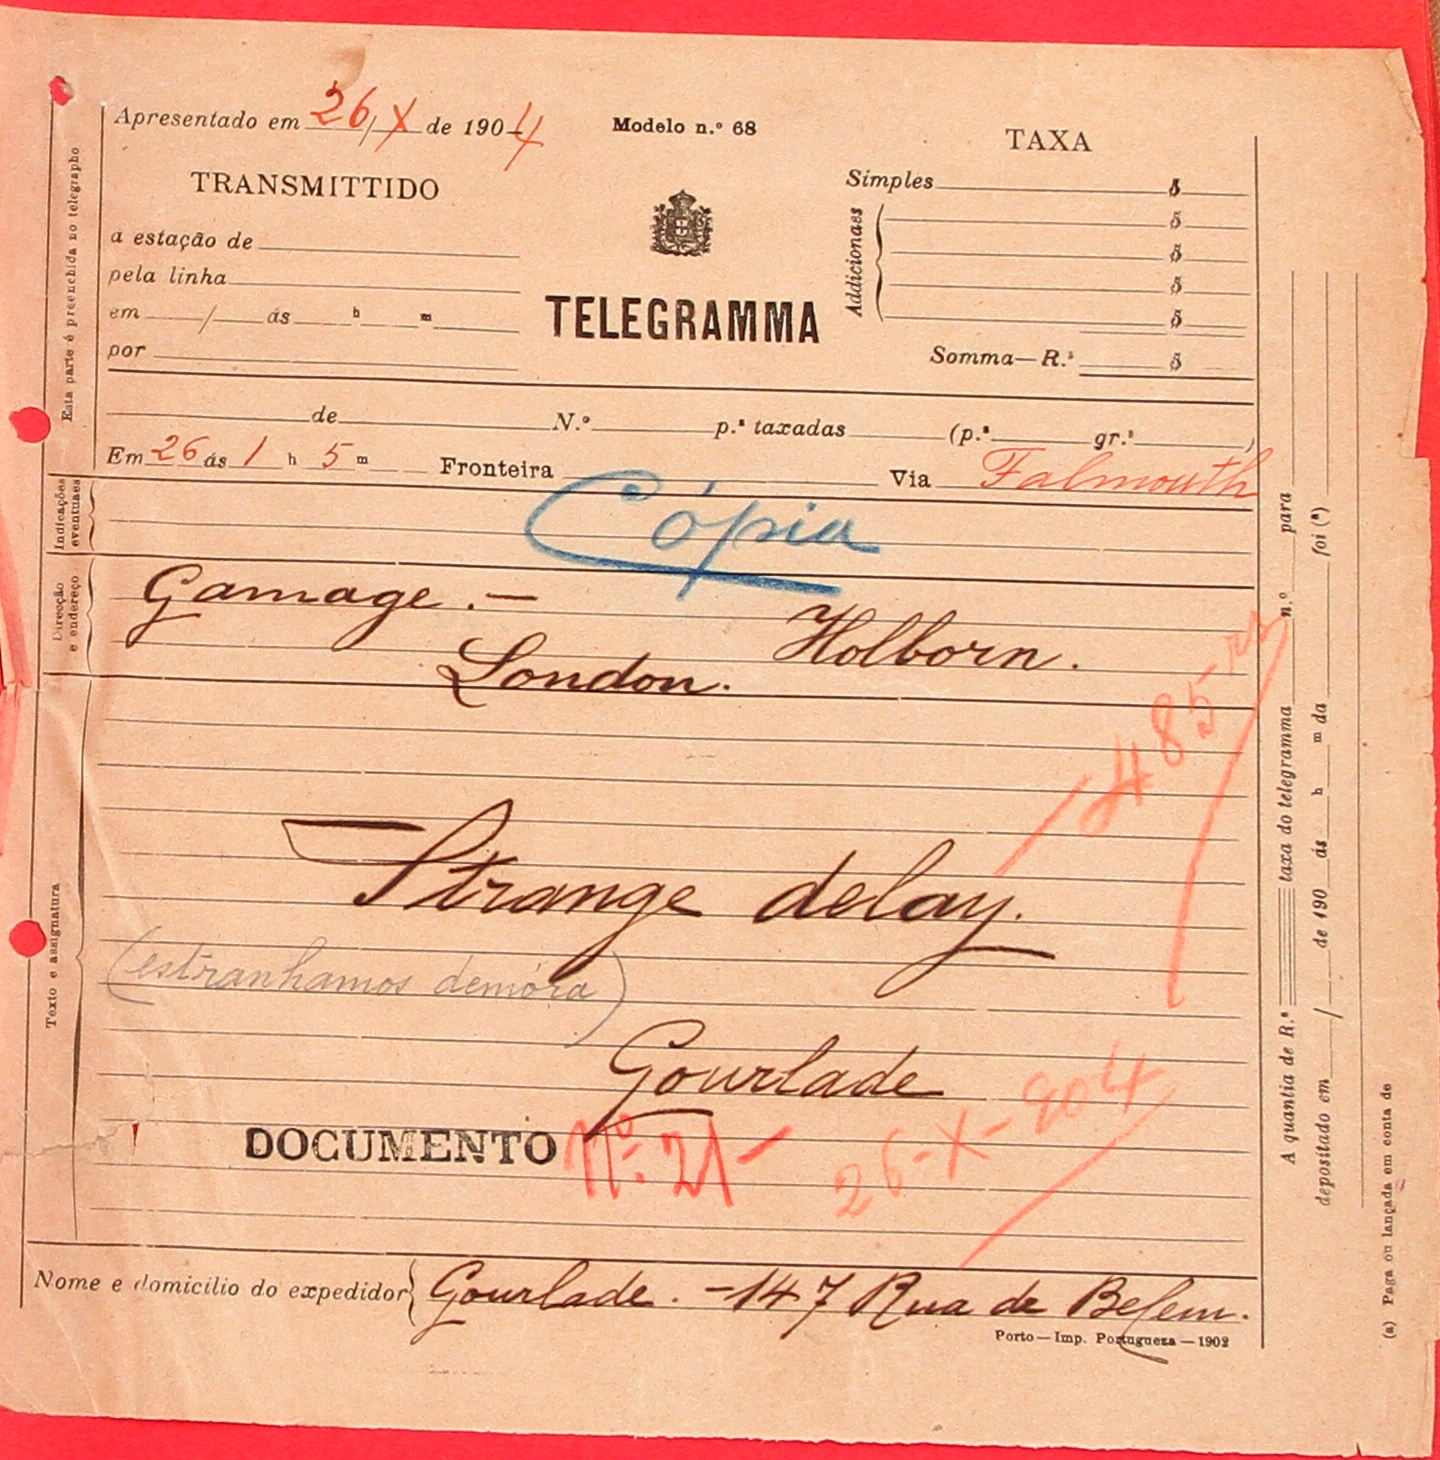 Apresentado em 26/X de 1904
Modelo n.º 68
TAXA
TRANSMITTIDO
Simples $
a estação de
Addicionaes
$
$
pela linha
$
em / ás h m
TELEGRAMMA
$
por
Somma—R.s $
de N.º p.as taxadas (p.as gr.s )
Em 26 ás 1 h 5 m Fronteira Via Falmouth
Esta parte é preenchida no telegrapho
Indicações eventuaes
Cópia
Direcção e endereço
Gamage.—
Holborn.
London.
—485 rs
Texto e assignatura
Strange delay.
(estranhamos demóra)
Gourlade
DOCUMENTO Nº. 21—
26-X-904
Nome e domicilio do expedidor Gourlade. —147 Rua de Belem.
Porto—Imp. Portugueza—1902
A quantia de R.s taxa do telegramma n.º para
depositado em / de 190 ás h m da foi (a)
(a) Paga ou lançada em conta de